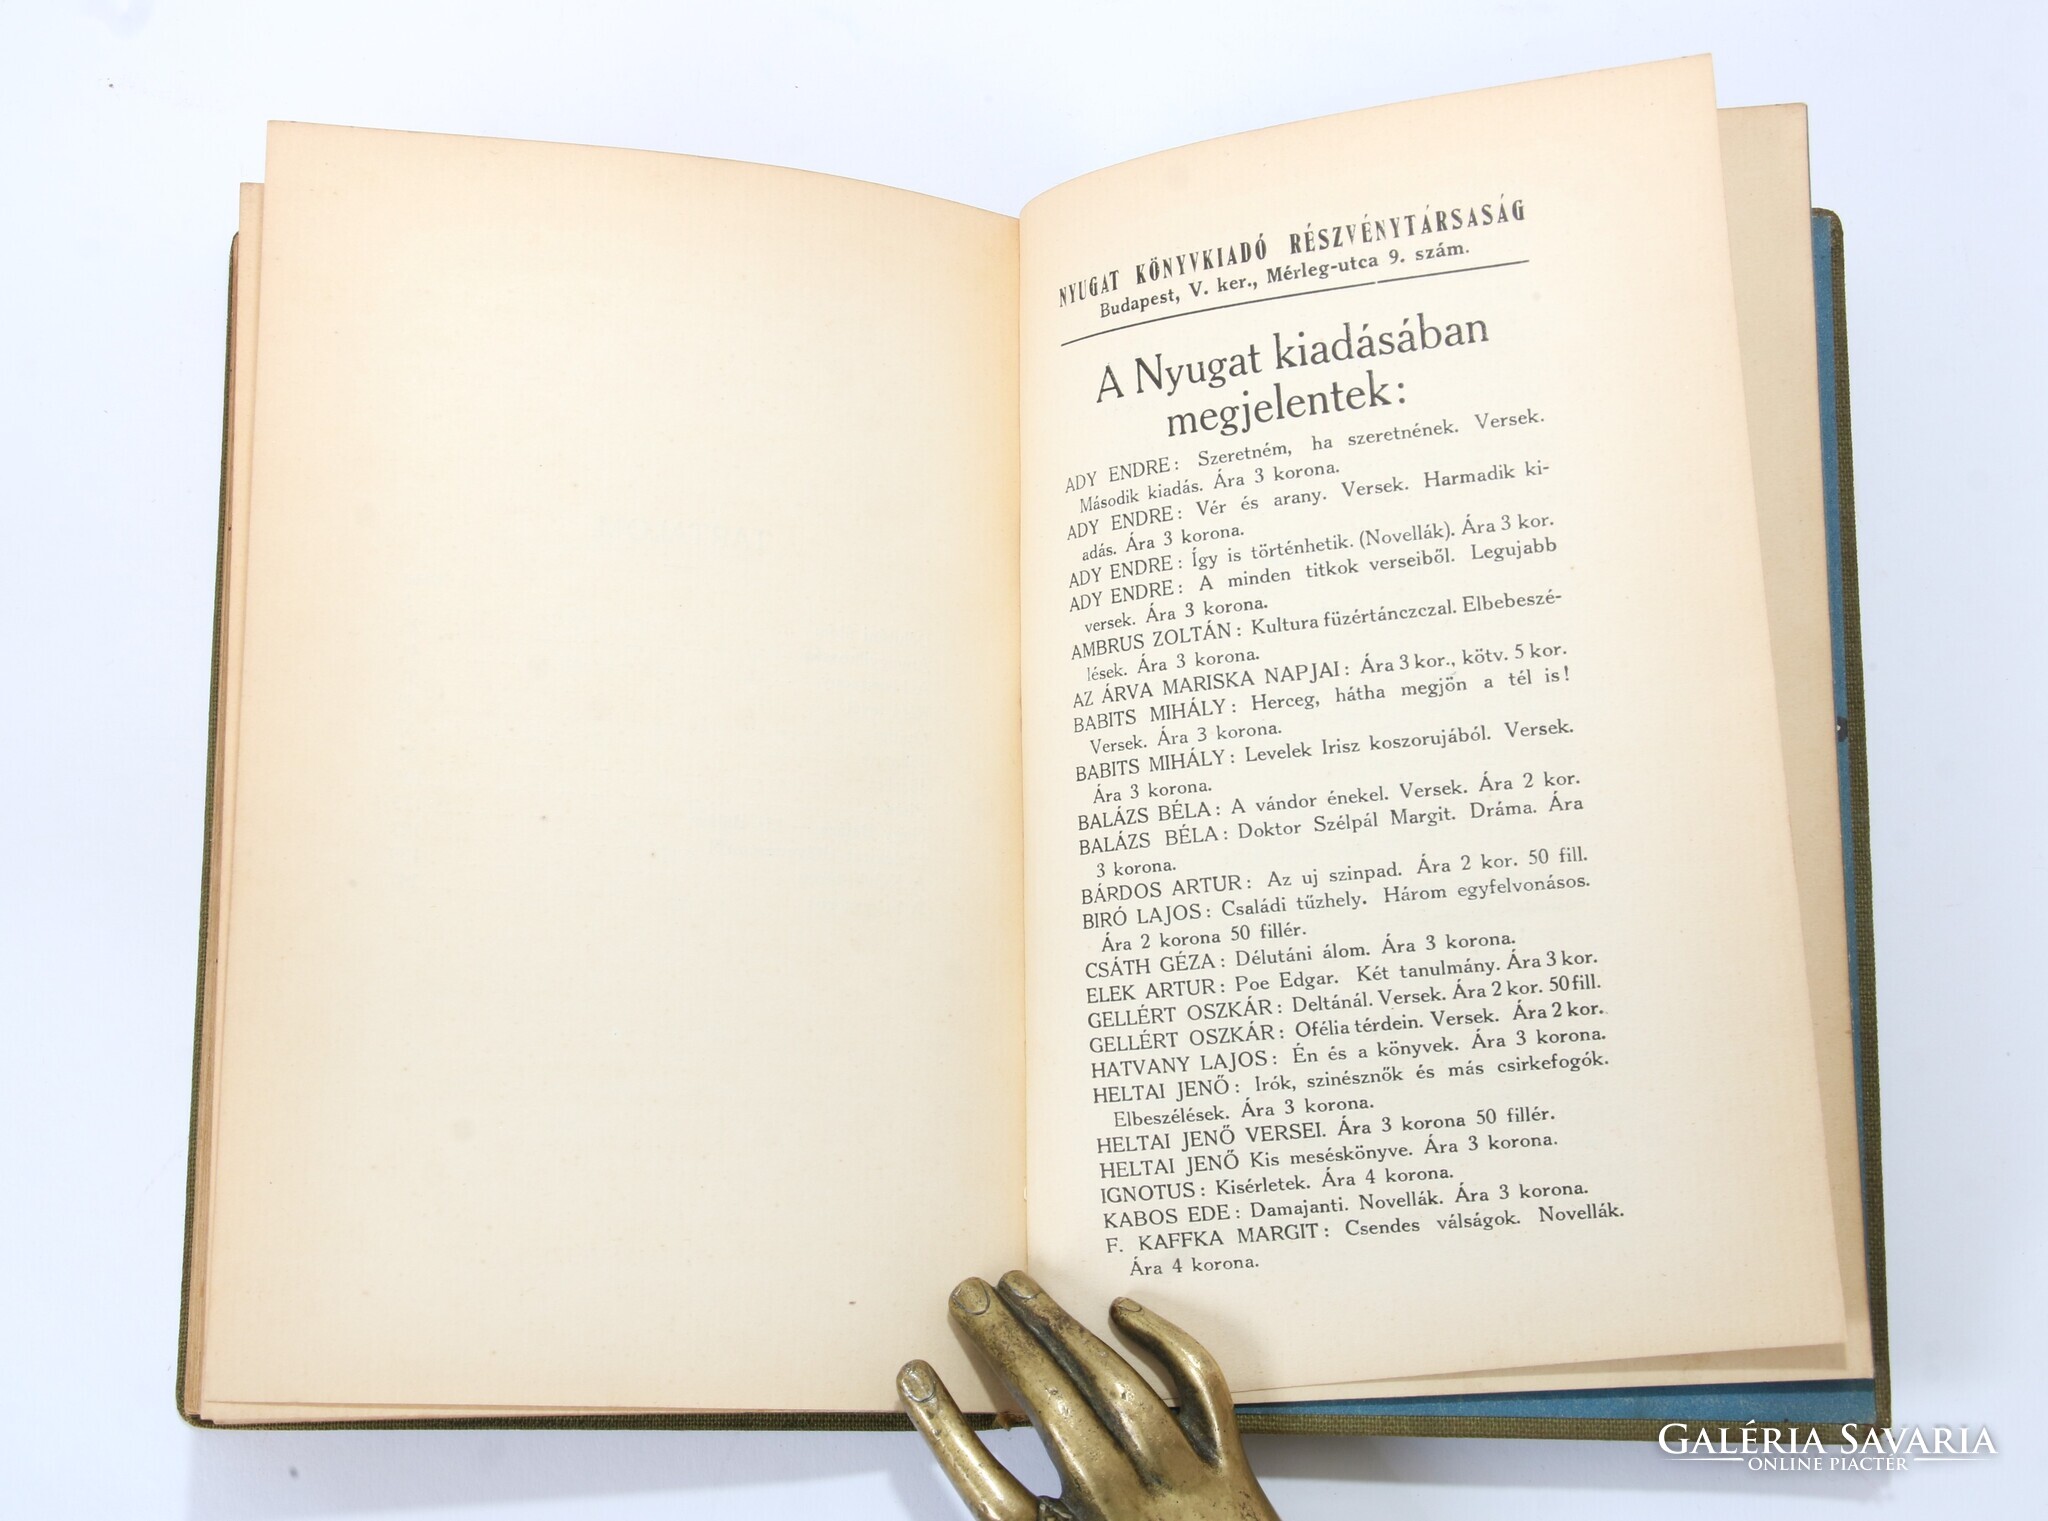 NYUGAT KÖNYVKIADÓ RÉSZVÉNYTÁRSASÁG
Budapest, V. ker., Mérleg-utca 9. szám.
A Nyugat kiadásában
megjelentek:
ADY ENDRE: Szeretném, ha szeretnének. Versek.
Második kiadás. Ára 3 korona.
ADY ENDRE: Vér és arany. Versek. Harmadik ki-
adás. Ára 3 korona.
ADY ENDRE: Így is történhetik. (Novellák). Ára 3 kor.
ADY ENDRE: A minden titkok verseiből. Legujabb
versek. Ára 3 korona.
AMBRUS ZOLTÁN: Kultura füzértánczczal. Elbebeszé-
lések. Ára 3 korona.
AZ ÁRVA MARISKA NAPJAI: Ára 3 kor., kötv. 5 kor.
BABITS MIHÁLY: Herceg, hátha megjön a tél is!
Versek. Ára 3 korona.
BABITS MIHÁLY: Levelek Irisz koszorujából. Versek.
Ára 3 korona.
BALÁZS BÉLA: A vándor énekel. Versek. Ára 2 kor.
BALÁZS BÉLA: Doktor Szélpál Margit. Dráma. Ára
3 korona.
BÁRDOS ARTUR: Az uj szinpad. Ára 2 kor. 50 fill.
BIRÓ LAJOS: Családi tűzhely. Három egyfelvonásos.
Ára 2 korona 50 fillér.
CSÁTH GÉZA: Délutáni álom. Ára 3 korona.
ELEK ARTUR: Poe Edgar. Két tanulmány. Ára 3 kor.
GELLÉRT OSZKÁR: Deltánál. Versek. Ára 2 kor. 50 fill.
GELLÉRT OSZKÁR: Ofélia térdein. Versek. Ára 2 kor.
HATVANY LAJOS: Én és a könyvek. Ára 3 korona.
HELTAI JENŐ: Irók, szinésznők és más csirkefogók.
Elbeszélések. Ára 3 korona.
HELTAI JENŐ VERSEI. Ára 3 korona 50 fillér.
HELTAI JENŐ Kis meséskönyve. Ára 3 korona.
IGNOTUS: Kisérletek. Ára 4 korona.
KABOS EDE: Damajanti. Novellák. Ára 3 korona.
F. KAFFKA MARGIT: Csendes válságok. Novellák.
Ára 4 korona.
GALÉRIA SAVARIA
ONLINE PIACTÉR